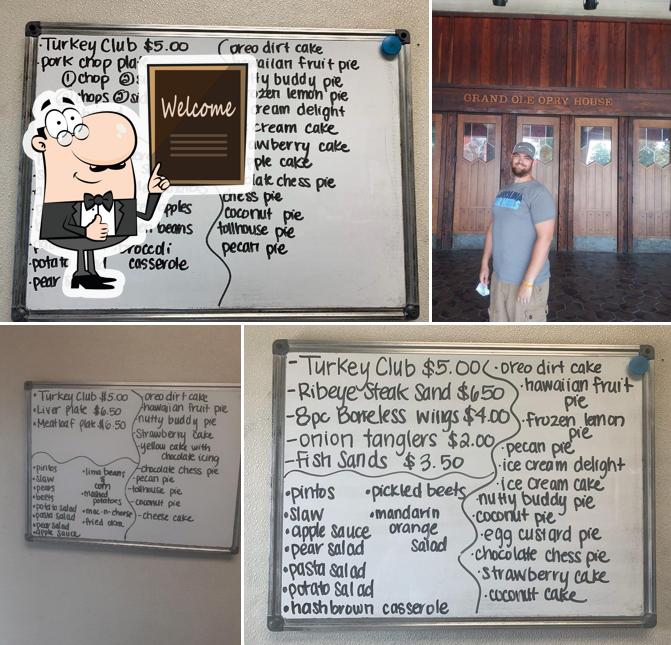 ·Turkey Club $5.00
·pork chop pla
① chop ②s
hops ② sid
pples
beans
broccoli
·potato
casserole
·pear
oreo dirt cake
aiian fruit pie
ty buddy pie
ozen lemon pie
cream delight
cream cake
awberry cake
ple cake
late chess pie
chess pie
coconut pie
tollhouse pie
pecan pie
Welcome
GRAND OLE OPRY HOUSE
• Turkey Club $5.00
• Liver plate $6.50
• Meatloaf plate $6.50
•pintos
•slaw
•pears
•beets
•potato salad
•pasta salad
•pear salad
•apple sauce
•lima beans
&
corn
•mashed
potatoes
•mac-n-cheese
•fried okra
-oreo dirt cake
-hawaiian fruit pie
-nutty buddy pie
-Strawberry cake
-yellow cake with
chocolate icing
-chocolate chess pie
-pecan pie
-tollhouse pie
-coconut pie
-cheese cake
- Turkey Club $5.00
-Ribeye Steak Sand $6.50
-8pc Boneless wings $4.00
-onion tanglers $2.00
-Fish Sands $3.50
•pintos
•slaw
•apple sauce
•pear salad
•pasta salad
•potato salad
•hashbrown casserole
•pickled beets
•mandarin
orange
salad
•oreo dirt cake
•hawaiian fruit
pie
•frozen lemon
pie
•pecan pie
•ice cream delight
•ice cream cake
•nutty buddy pie
•coconut pie
•egg custard pie
•chocolate chess pie
•strawberry cake
•coconut cake